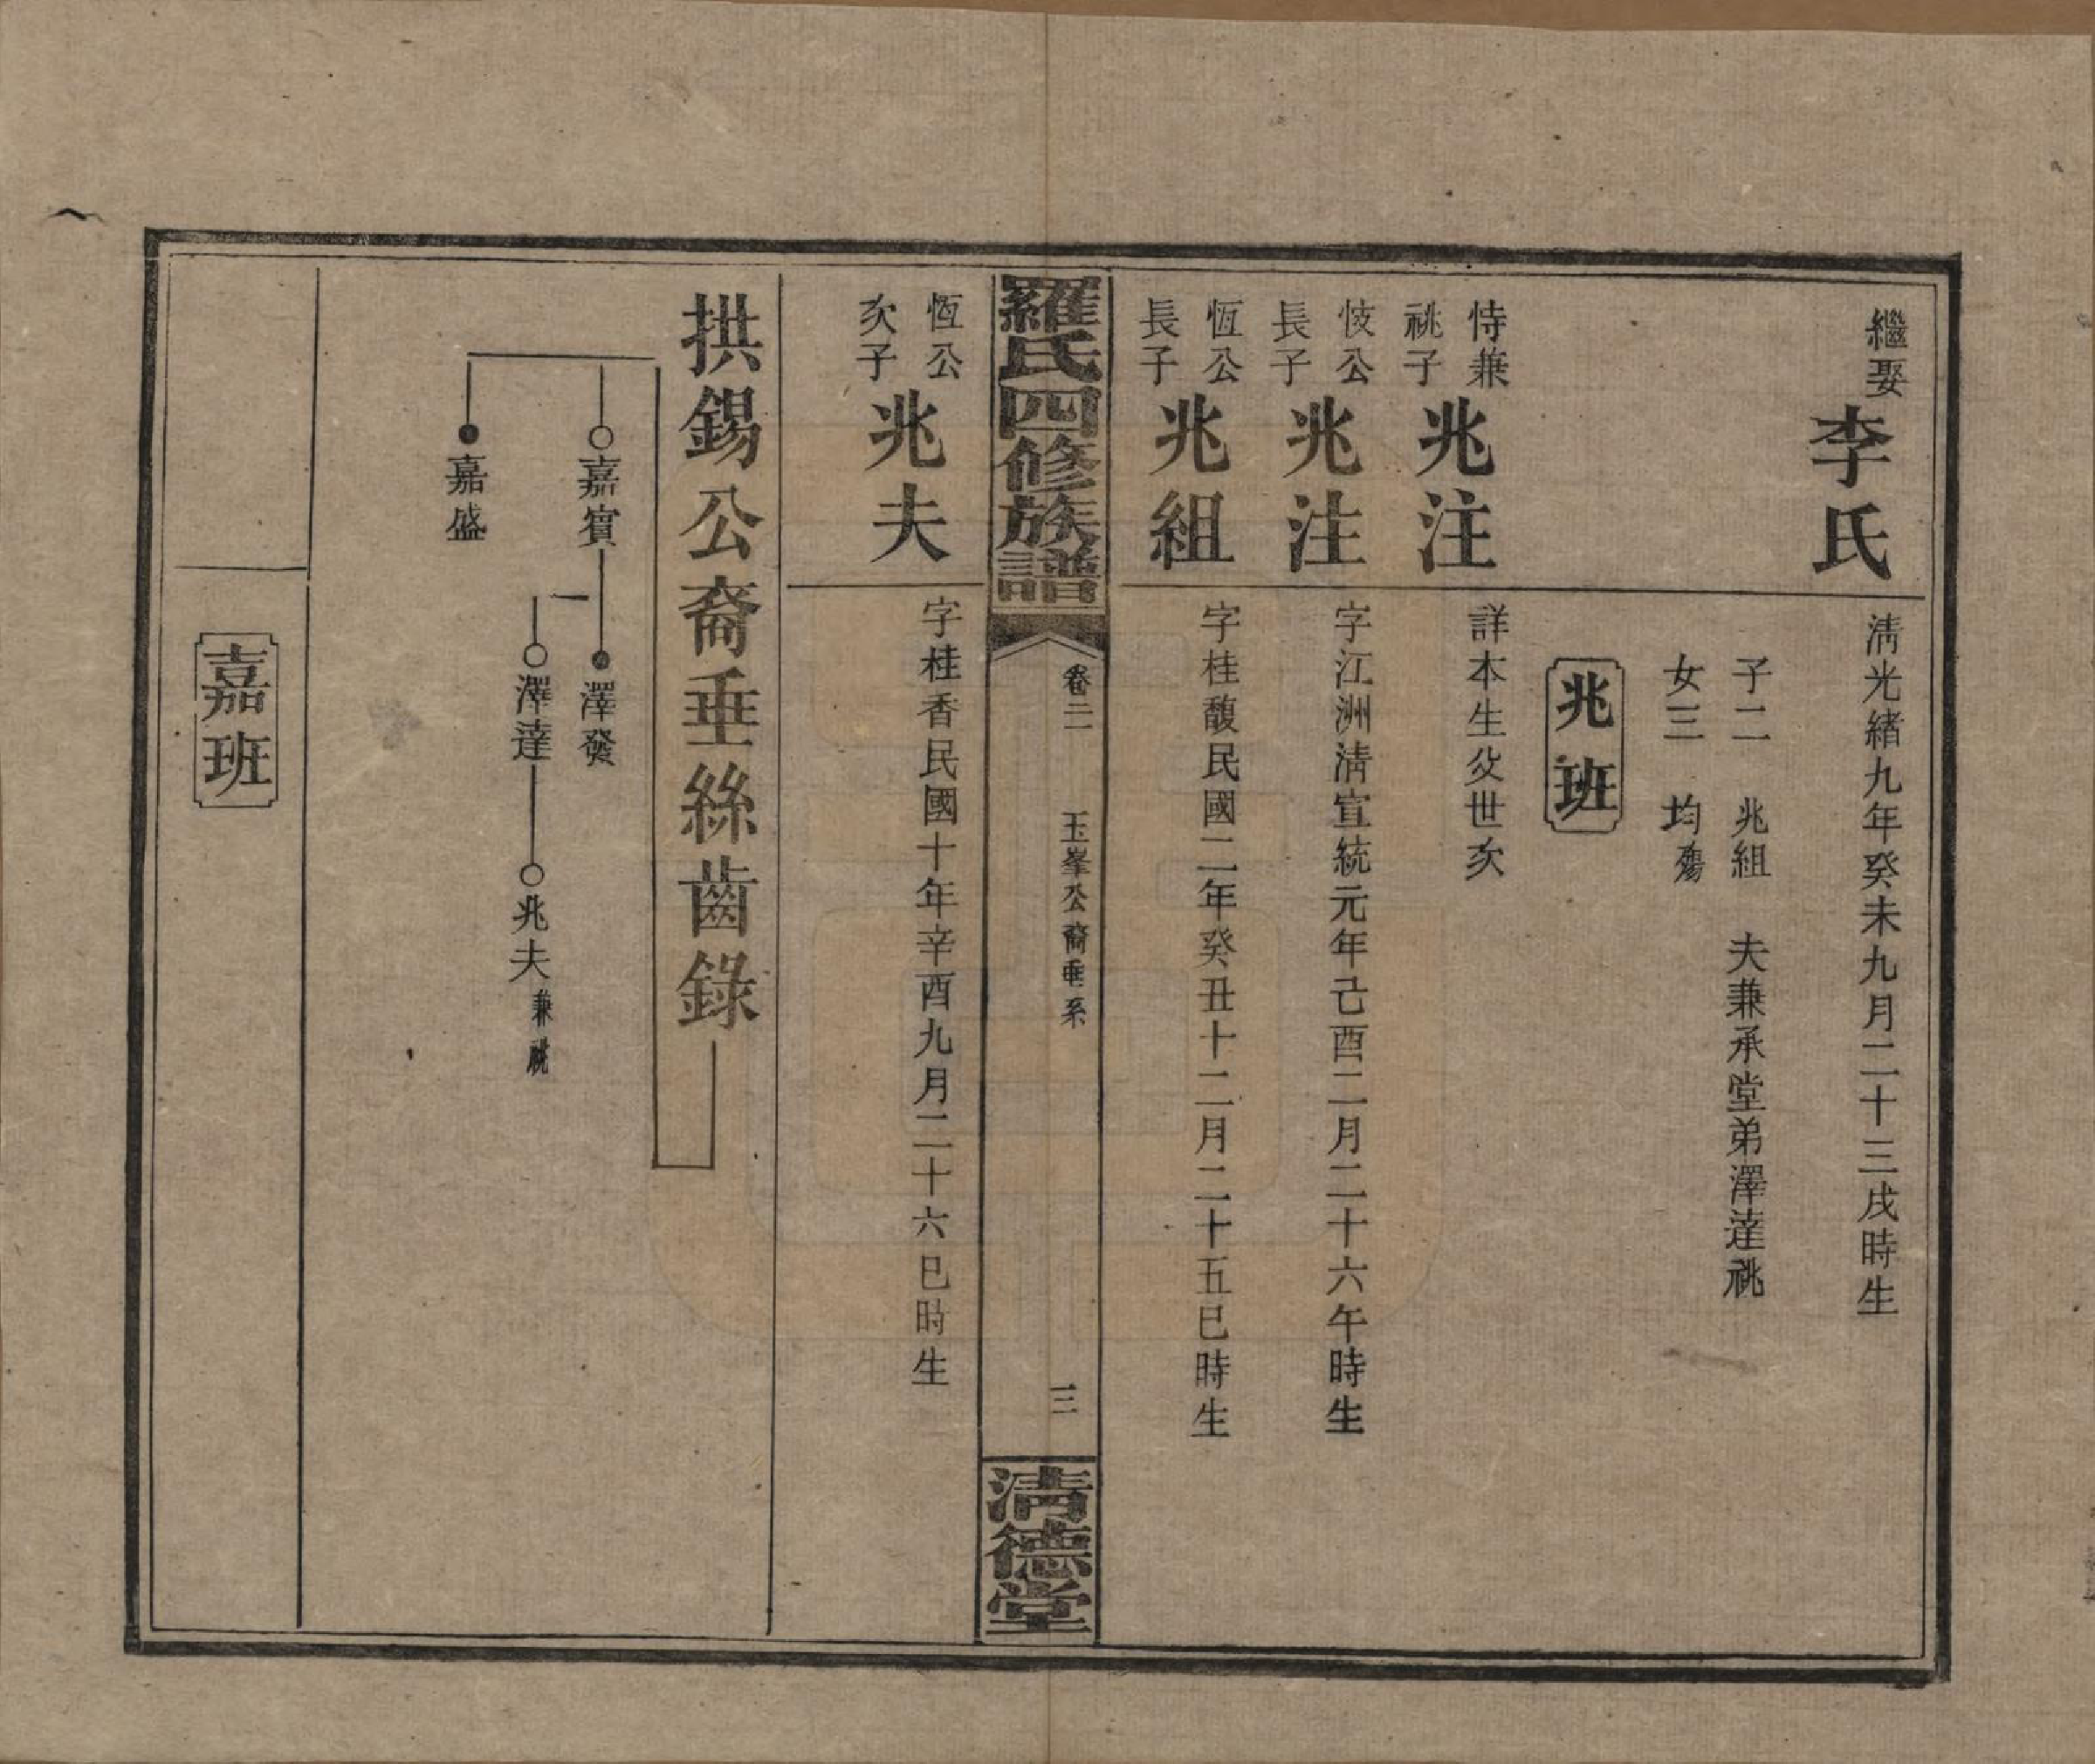 繼娶 李氏 淸光緒九年癸未九月二十三戌時生
子二 兆組 夫兼承堂弟澤逹祧
女三 均殤
兆班
恃兼祧子 兆注 詳本生父世次
忮公長子 兆注 字江洲淸宣統元年己酉二月二十六午時生
恆公長子 兆組 字桂馥民國二年癸丑十二月二十五巳時生
羅氏四修族譜 卷二 玉峯公裔垂系 三 淸德堂
恆公次子 兆夫 字桂香民國十年辛酉九月二十六巳時生
拱錫公裔垂絲齒錄
嘉賓 澤發
澤逹 兆夫 兼祧
嘉盛
嘉班